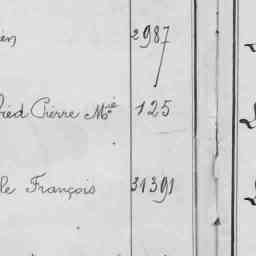 2987
Pierre Mie 125
le François 31391